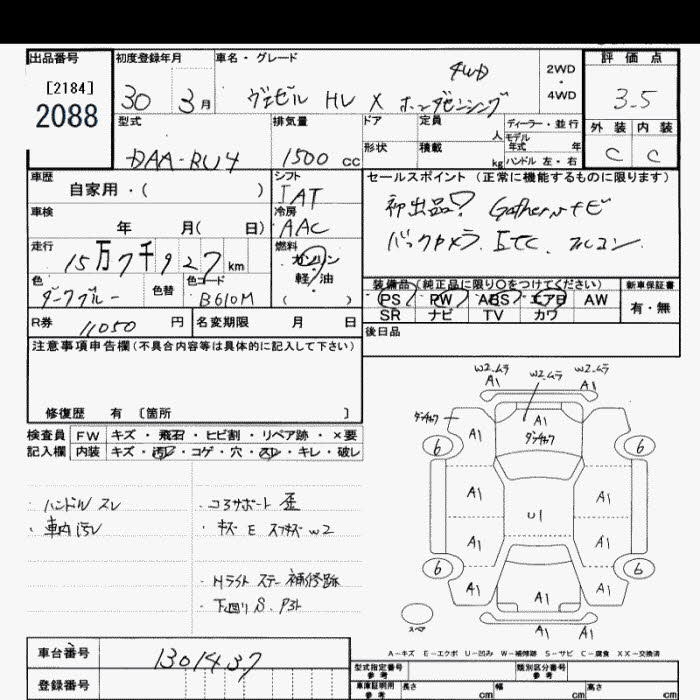 出品番号 初度登録年月 車名・グレード 評価点
[2184]
2088
30 3月 ヴェゼル HV X ホンダセンシング 4WD
2WD
・
4WD
3.5
型式 排気量 ドア 定員 人 ディーラー・並行 外装 内装
モデル年式 年
DAA-RU4 1500 cc 形状 積載 kg ハンドル 左・右 C C
車歴 シフト セールスポイント (正常に機能するものに限ります)
自家用・( ) IAT
初出品 Gathersナビ
車検 冷房
年 月( 日) AAC
バックカメラ. ETC. アルコン
走行 燃料
15万7千927 km ガソリン
軽・油
( )
色 色替 色コード 装備品(純正品に限り○をつけてください) 新車保証書
ダークブルー B610M PS PW ABS エアB AW 有・無
SR ナビ TV カワ
R券 11050 円 名変期限 月 日 後日品
注意事項申告欄(不具合内容等は具体的に記入して下さい)
修復歴 有 [箇所 ]
検査員 FW キズ・飛石・ヒビ割・リペア跡・×要
記入欄 内装 キズ・汚レ・コゲ・穴・スレ・キレ・破レ
・ハンドル スレ ・コアサポート 歪
・車内汚レ ・キズ E スリキズ W2
・Hライト ステー 補修跡
・下回り S. P外
W2.ムラ W2.ムラ W2.ムラ
A1 A1
A1 A1 A1
6 6
A1 A1
U1
A1 A1
6 6
A1 A1 A1
スペア
A1 A1
A-キズ E-エクボ U-凹み W-補修跡 S-サビ C-腐食 XX-交換済
車台番号 1301437 型式指定番号 参考 類別区分番号 参考
登録番号 車庫証明用 参考 長さ cm 幅 cm 高さ cm